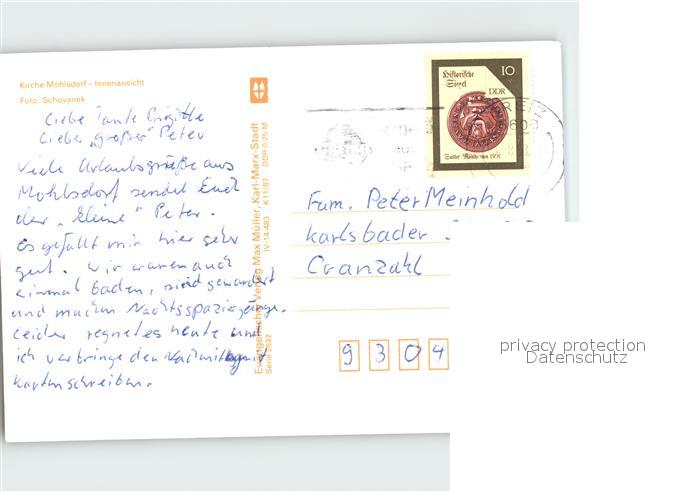 Kirche Mohlsdorf – Innenansicht
Foto: Schovanek
Liebe Tante Brigitte
Lieber „großer“ Peter
Viele Urlaubsgrüße aus
Mohlsdorf sendet Euch
der „kleine“ Peter.
Es gefällt mir hier sehr
gut. Wir waren auch
einmal baden, sind gewandert
und machen Nachtsspaziergänge.
Leider regnet es heute und
ich verbringe den Nachmittag mit
Kartenschreiben.
Evangelischer Verlag Max Müller, Karl-Marx-Stadt
IV-14-483 K 11/87 DDR 0,25 M
Serie 2032
Historische
Siegel
10
DDR
Fam. Peter Meinhold
Karlsbader
Cranzahl
9 3 0 4
privacy protection
Datenschutz